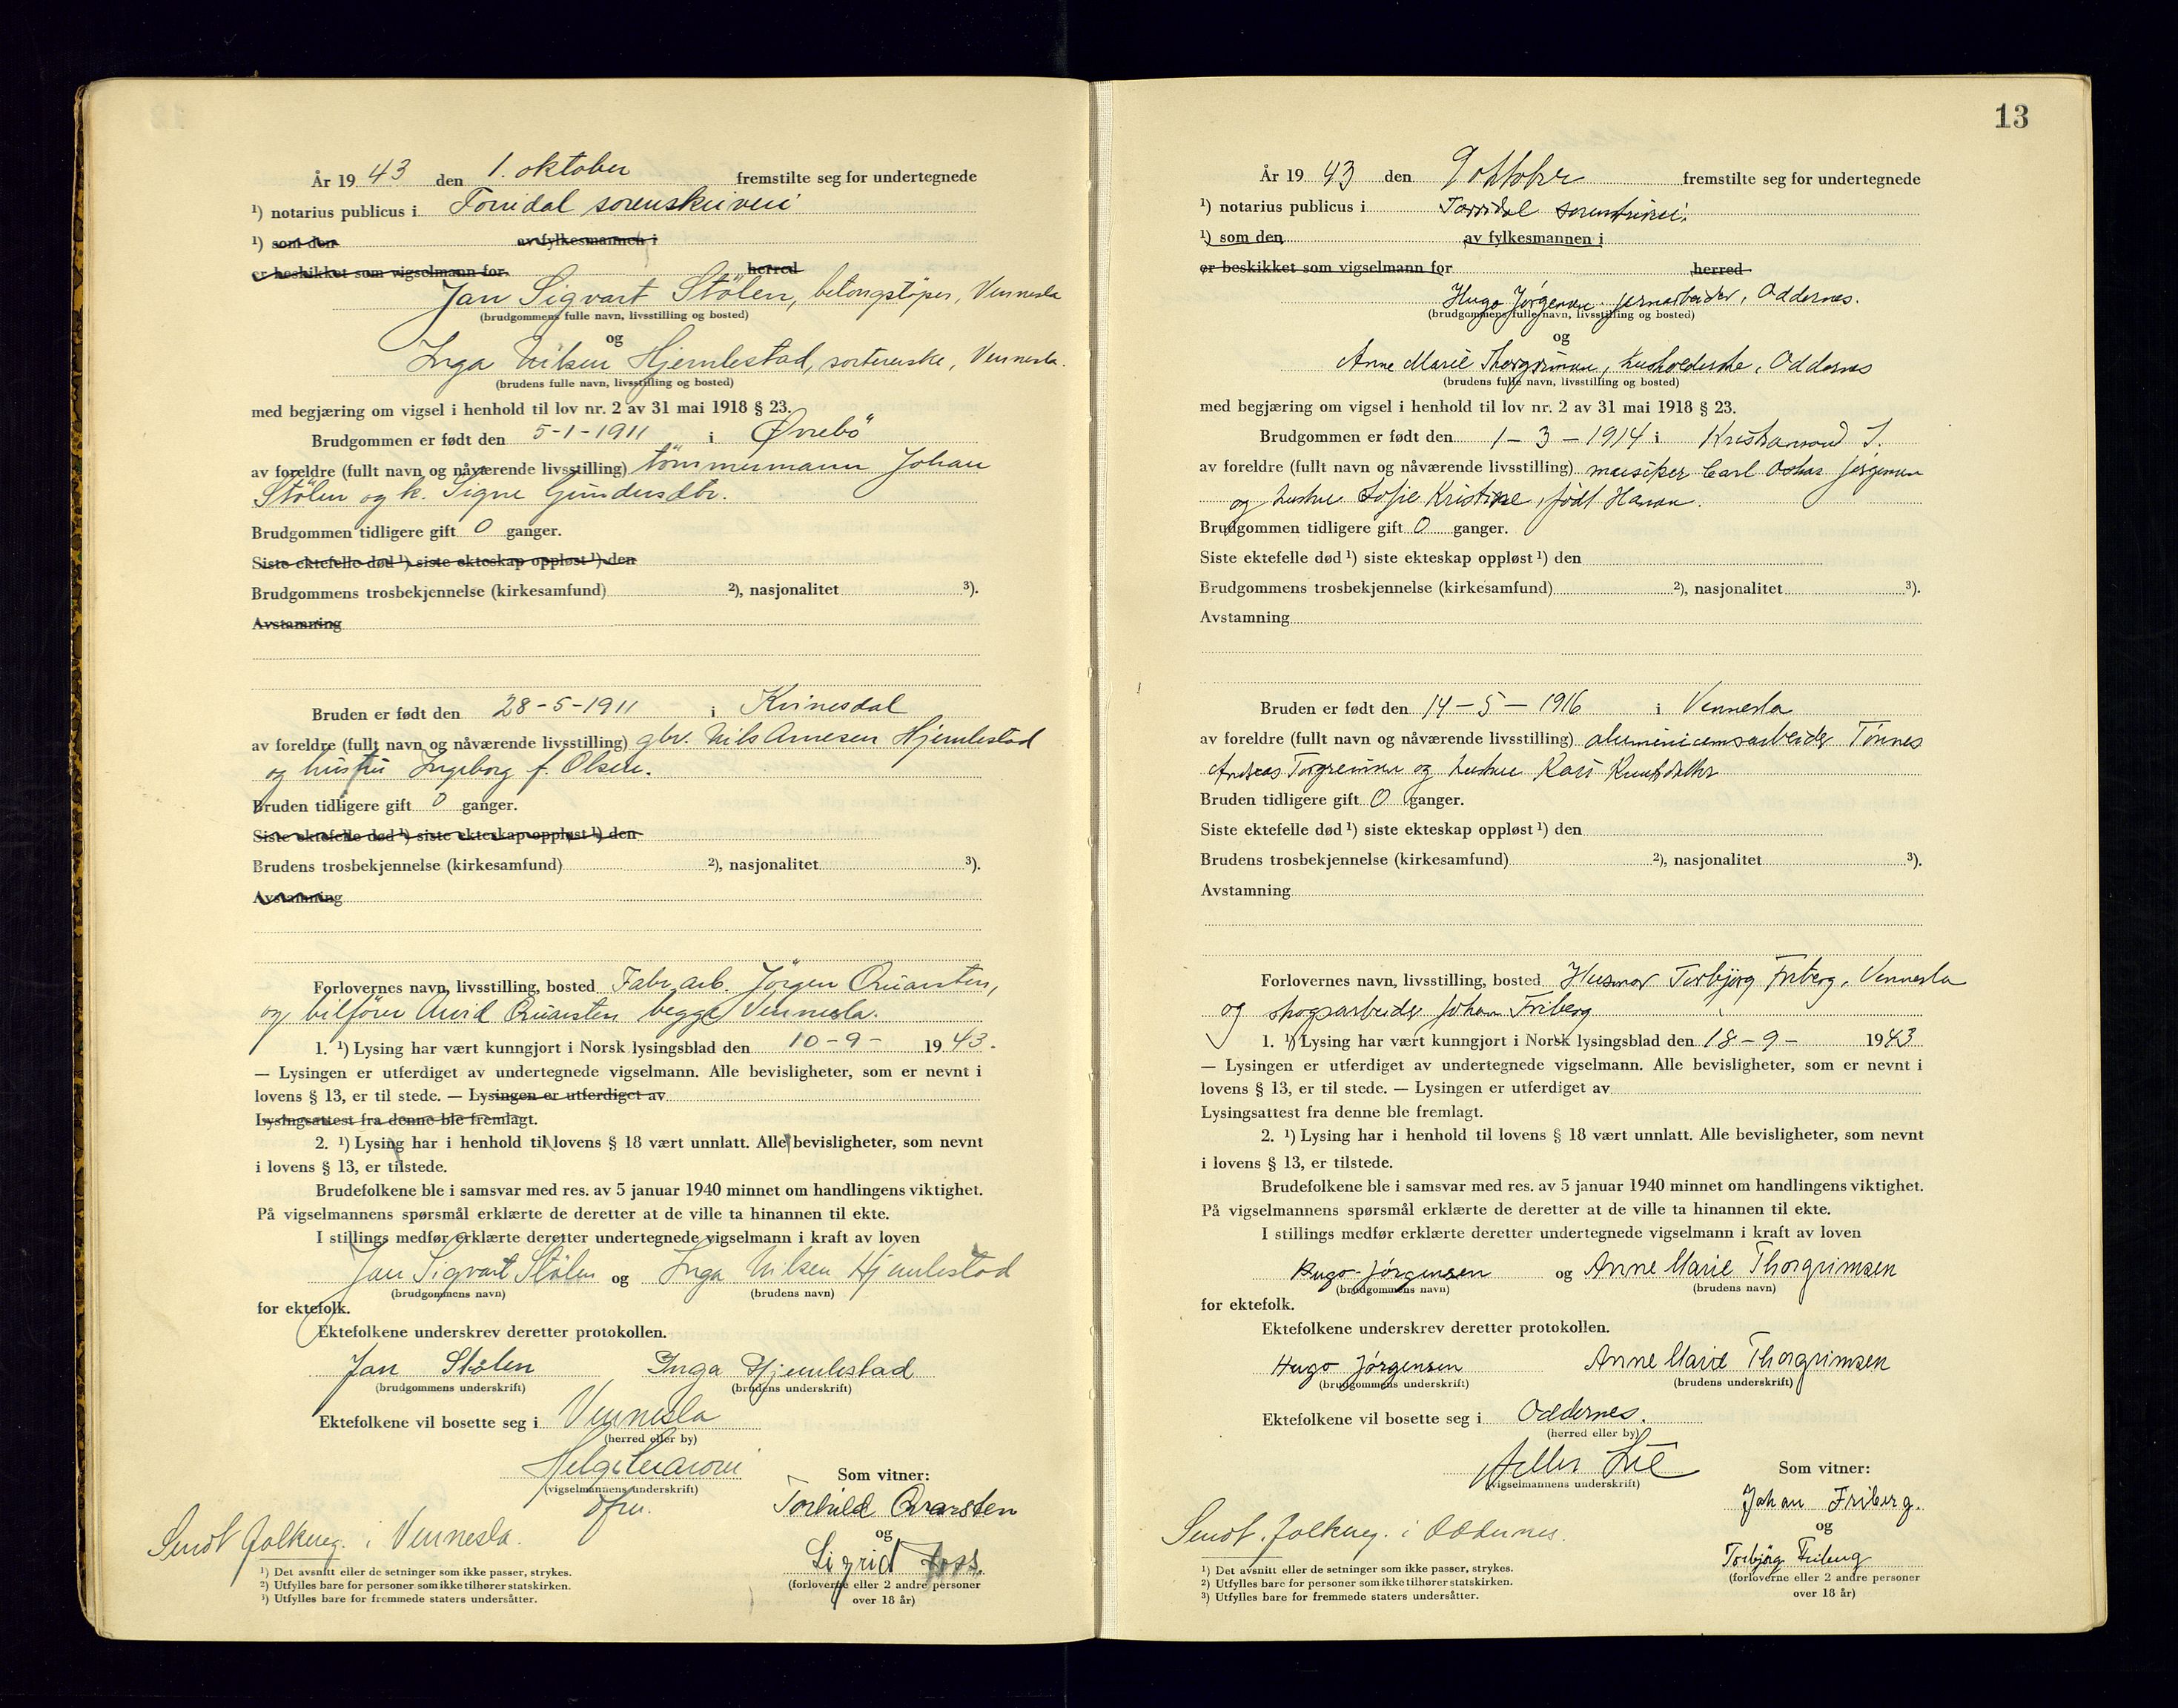 År 19 43 den 1. oktober fremstilte seg for undertegnede
¹) notarius publicus i Torridal sorenskriveri
¹) som den av fylkesmannen i
er beskikket som vigselmann for herred
Jan Sigvart Stölen, betongstöper, Vennesla
(brudgommens fulle navn, livsstilling og bosted)
og
Inga Nilsen Hjemlestad, sorterske, Vennesla.
(brudens fulle navn, livsstilling og bosted)
med begjæring om vigsel i henhold til lov nr. 2 av 31 mai 1918 § 23.
Brudgommen er født den 5-1-1911 i Øvrebö
av foreldre (fullt navn og nåværende livsstilling) tömmermann Johan
Stölen og h. Signe Gundersdtr.
Brudgommen tidligere gift 0 ganger.
Siste ektefelle død ¹) siste ekteskap oppløst ¹) den
Brudgommens trosbekjennelse (kirkesamfund) ²), nasjonalitet ³).
Avstamning
Bruden er født den 28-5-1911 i Kvinesdal
av foreldre (fullt navn og nåværende livsstilling) gbr. Nils Arnesen Hjemlestad
og hustru Ingeborg f. Olsen.
Bruden tidligere gift 0 ganger.
Siste ektefelle død ¹) siste ekteskap oppløst ¹) den
Brudens trosbekjennelse (kirkesamfund) ²), nasjonalitet ³).
Avstamning
Forlovernes navn, livsstilling, bosted Fabr.arb. Jörgen Qvarsten,
og bilfører Arvid Qvarsten begge Vennesla.
1. ¹) Lysing har vært kunngjort i Norsk lysingsblad den 10-9- 19 43.
— Lysingen er utferdiget av undertegnede vigselmann. Alle bevisligheter, som er nevnt i
lovens § 13, er til stede. — Lysingen er utferdiget av
Lysingsattest fra denne ble fremlagt.
2. ¹) Lysing har i henhold til lovens § 18 vært unnlatt. Alle bevisligheter, som nevnt
i lovens § 13, er tilstede.
Brudefolkene ble i samsvar med res. av 5 januar 1940 minnet om handlingens viktighet.
På vigselmannens spørsmål erklærte de deretter at de ville ta hinannen til ekte.
I stillings medfør erklærte deretter undertegnede vigselmann i kraft av loven
Jan Sigvart Stölen og Inga Nilsen Hjemlestad
(brudgommens navn) (brudens navn)
for ektefolk.
Ektefolkene underskrev deretter protokollen.
Jan Stölen Inga Hjemlestad
(brudgommens underskrift) (brudens underskrift)
Ektefolkene vil bosette seg i Vennesla
(herred eller by)
(vigselmannens underskrift)
Som vitner:
Torhild Qvarsten
og
Sigrid Foss.
(forloverne eller 2 andre personer
over 18 år)
Sendt folkereg. i Vennesla.
¹) Det avsnitt eller de setninger som ikke passer, strykes.
²) Utfylles bare for personer som ikke tilhører statskirken.
³) Utfylles bare for fremmede staters undersåtter.
13
År 19 43 den 9 oktober fremstilte seg for undertegnede
¹) notarius publicus i Torridal sorenskriveri.
¹) som den av fylkesmannen i
er beskikket som vigselmann for herred
Hugo Jørgensen, jernarbeider, Oddernes.
(brudgommens fulle navn, livsstilling og bosted)
og
Anne Marie Thorgrimsen, husholderske, Oddernes
(brudens fulle navn, livsstilling og bosted)
med begjæring om vigsel i henhold til lov nr. 2 av 31 mai 1918 § 23.
Brudgommen er født den 1-3-1914 i Kristiansand S.
av foreldre (fullt navn og nåværende livsstilling) musiker Carl Oskar Jørgensen
og hustru Sofie Kristine, født Hansen.
Brudgommen tidligere gift 0 ganger.
Siste ektefelle død ¹) siste ekteskap oppløst ¹) den
Brudgommens trosbekjennelse (kirkesamfund) ²), nasjonalitet ³).
Avstamning
Bruden er født den 14-5-1916 i Vennesla
av foreldre (fullt navn og nåværende livsstilling) aluminiumsarbeider Tønnes
Andreas Torgrimsen og hustru Kari Knutsdatter
Bruden tidligere gift 0 ganger.
Siste ektefelle død ¹) siste ekteskap oppløst ¹) den
Brudens trosbekjennelse (kirkesamfund) ²), nasjonalitet ³).
Avstamning
Forlovernes navn, livsstilling, bosted Husmor Torbjørg Friberg, Vennesla
og skogsarbeider Johan Friberg
1. ¹) Lysing har vært kunngjort i Norsk lysingsblad den 18-9- 1943
— Lysingen er utferdiget av undertegnede vigselmann. Alle bevisligheter, som er nevnt i
lovens § 13, er til stede. — Lysingen er utferdiget av
Lysingsattest fra denne ble fremlagt.
2. ¹) Lysing har i henhold til lovens § 18 vært unnlatt. Alle bevisligheter, som nevnt
i lovens § 13, er tilstede.
Brudefolkene ble i samsvar med res. av 5 januar 1940 minnet om handlingens viktighet.
På vigselmannens spørsmål erklærte de deretter at de ville ta hinannen til ekte.
I stillings medfør erklærte deretter undertegnede vigselmann i kraft av loven
Hugo Jørgensen og Anne Marie Thorgrimsen
(brudgommens navn) (brudens navn)
for ektefolk.
Ektefolkene underskrev deretter protokollen.
Hugo Jørgensen Anne Marie Thorgrimsen
(brudgommens underskrift) (brudens underskrift)
Ektefolkene vil bosette seg i Oddernes.
(herred eller by)
(vigselmannens underskrift)
Som vitner:
Johan Friberg.
og
Torbjørg Friberg
(forloverne eller 2 andre personer
over 18 år)
Sendt. folkereg. i Oddernes.
¹) Det avsnitt eller de setninger som ikke passer, strykes.
²) Utfylles bare for personer som ikke tilhører statskirken.
³) Utfylles bare for fremmede staters undersåtter.